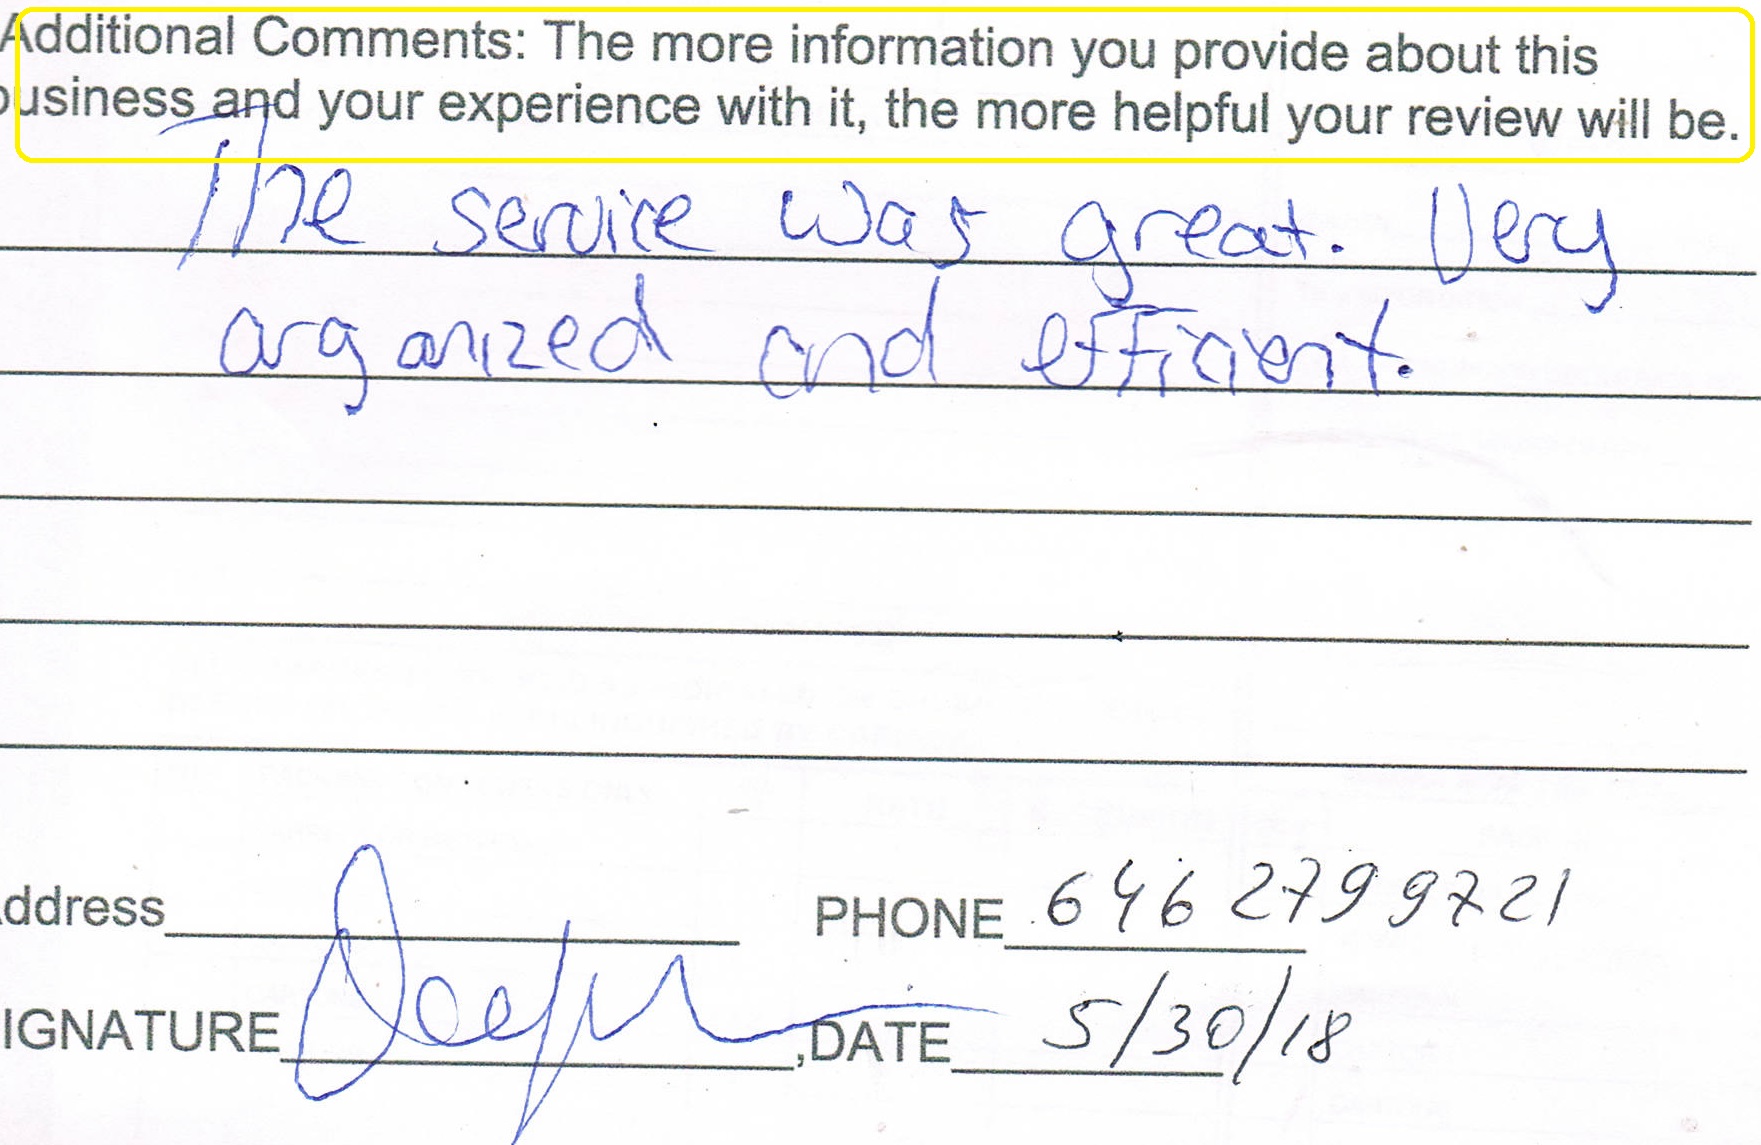 Additional Comments: The more information you provide about this
business and your experience with it, the more helpful your review will be.
The service was great. Very
organized and efficient.
Address PHONE 646 279 9721
SIGNATURE ,DATE 5/30/18